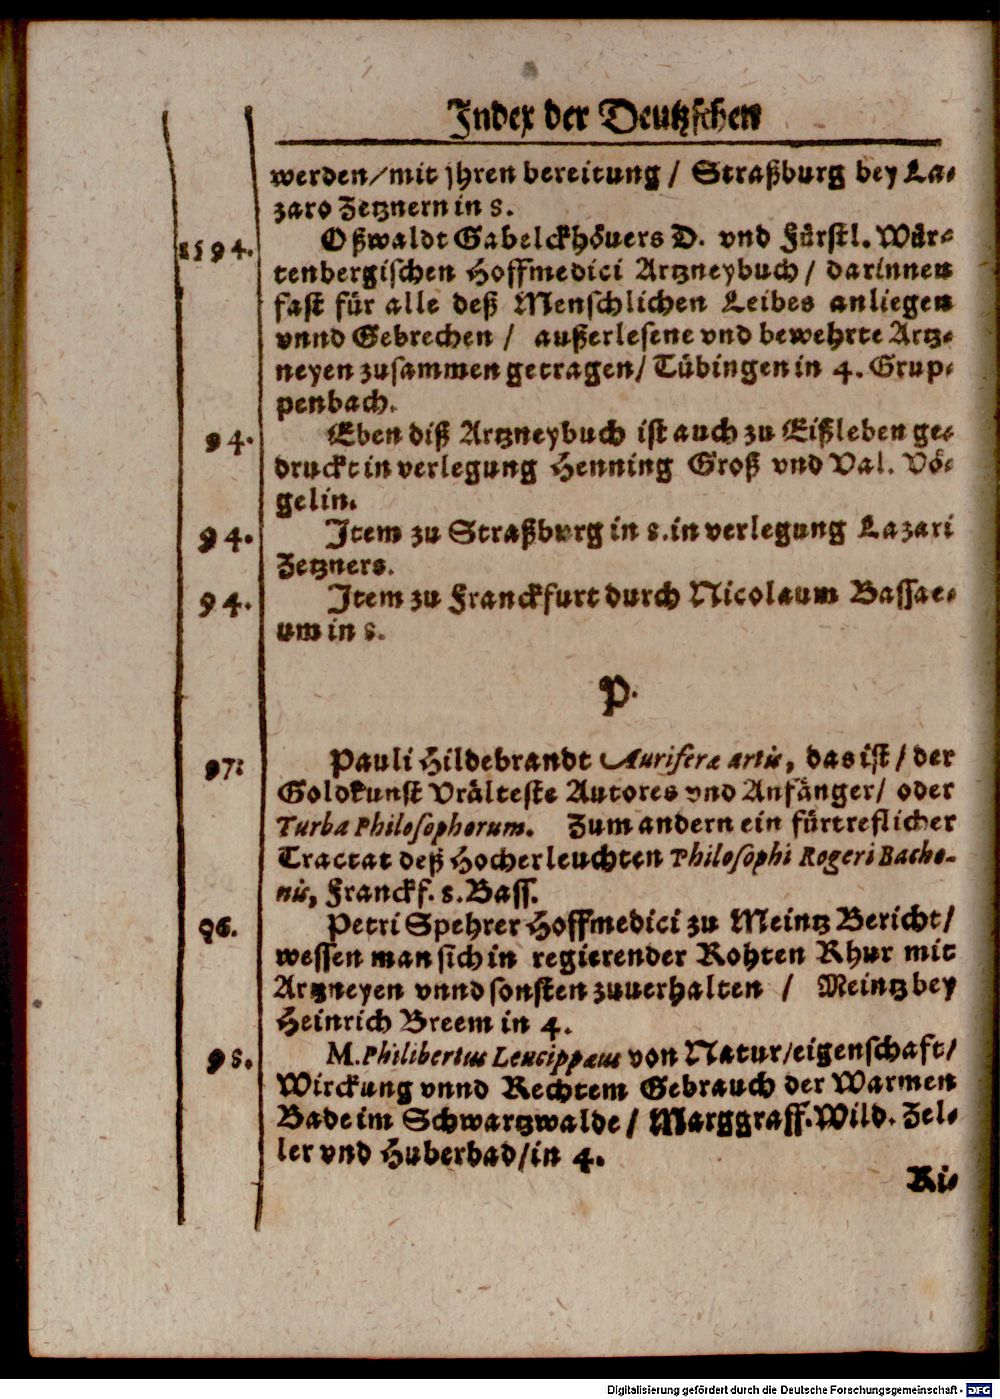 Index der Deutzschen
werden/mit jhren bereitung / Straßburg bey La-
zaro Zetznern in 8.
1594. Oßwaldt Gabelckhöuers D. vnd Fürstl. Wür-
tenbergischen Hoffmedici Artzneybuch / darinnen
fast für alle deß Menschlichen Leibes anliegen
vnnd Gebrechen / außerlesene vnd bewehrte Artz-
neyen zusammen getragen/ Tübingen in 4. Grup-
penbach.
94. Eben diß Artzneybuch ist auch zu Eißleben ge-
druckt in verlegung Henning Groß vnd Val. Vö-
gelin.
94. Item zu Straßburg in 8. in verlegung Lazari
Zetzners.
94. Item zu Franckfurt durch Nicolaum Bassae-
um in 8.
P.
97. Pauli Hildebrandt Auriferæ artis, das ist / der
Goldkunst Vrälteste Autores vnd Anfänger/ oder
Turba Philosophorum. Zum andern ein fürtreflicher
Tractat deß Hocherleuchten Philosophi Rogeri Bacho-
nis, Franckf. 8. Bass.
96. Petri Spehrer Hoffmedici zu Meintz Bericht/
wessen man sich in regierender Rohten Rhur mit
Artzneyen vnnd sonsten zuuerhalten / Meintz bey
Heinrich Breem in 4.
98. M. Philibertus Leucippæus von Natur/eigenschaft/
Wirckung vnnd Rechtem Gebrauch der Warmen
Bade im Schwartzwalde / Marggraff. Wild. Zel-
ler vnd Huberbad/in 4.
Ri-
Digitalisierung gefördert durch die Deutsche Forschungsgemeinschaft - DFG